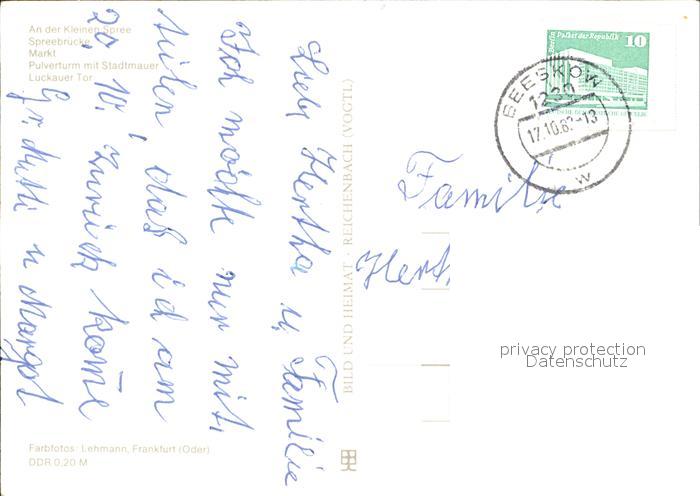 An der Kleinen Spree
Spreebrücke
Markt
Pulverturm mit Stadtmauer
Luckauer Tor
Liebe Hertha u. Familie
Ich möchte nur mit,
teilen, daß id am
20. 10. zurück kome
Gr. Mutti u Margot
Farbfotos: Lehmann, Frankfurt (Oder)
DDR 0,20 M
BILD UND HEIMAT · REICHENBACH (VOGTL)
Berlin Palast der Republik
10
BEESKOW
1230
17.10.8
-13
w
Familie
Hert.
privacy protection
Datenschutz